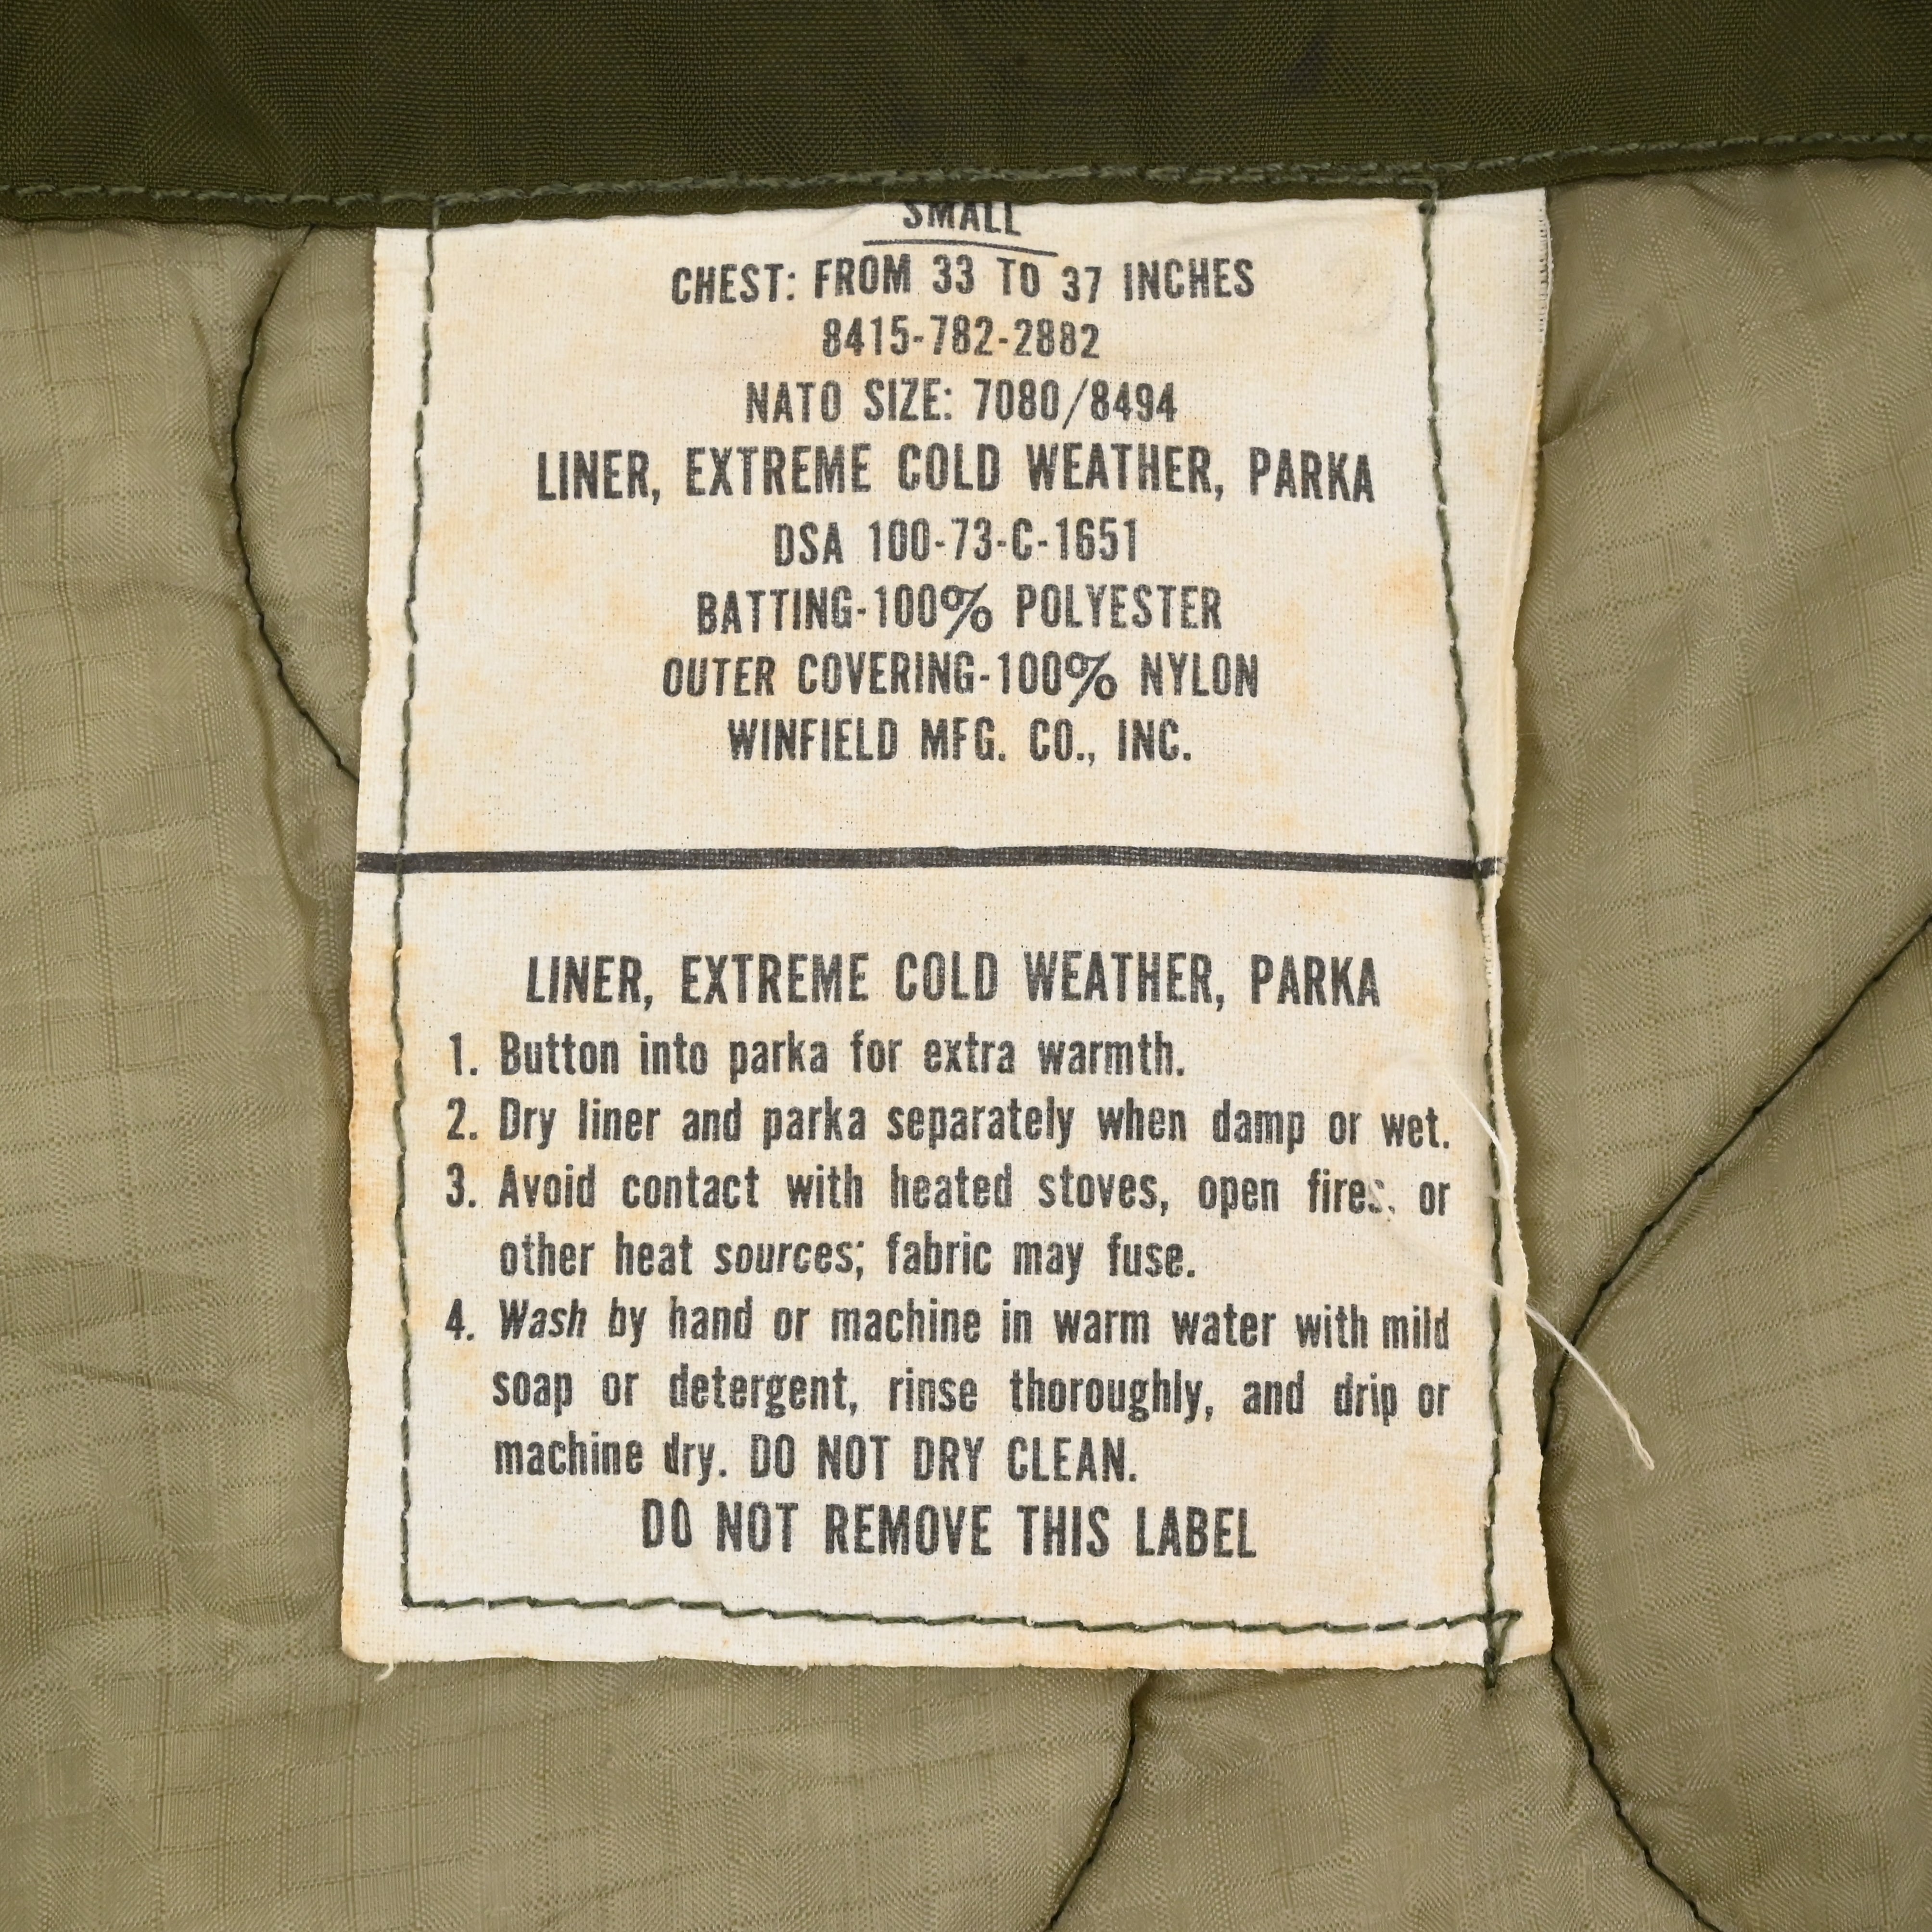 SMALL
CHEST: FROM 33 TO 37 INCHES
8415-782-2882
NATO SIZE: 7080/8494
LINER, EXTREME COLD WEATHER, PARKA
DSA 100-73-C-1651
BATTING-100% POLYESTER
OUTER COVERING-100% NYLON
WINFIELD MFG. CO., INC.
LINER, EXTREME COLD WEATHER, PARKA
1. Button into parka for extra warmth.
2. Dry liner and parka separately when damp or wet.
3. Avoid contact with heated stoves, open fires, or
other heat sources; fabric may fuse.
4. Wash by hand or machine in warm water with mild
soap or detergent, rinse thoroughly, and drip or
machine dry. DO NOT DRY CLEAN.
DO NOT REMOVE THIS LABEL